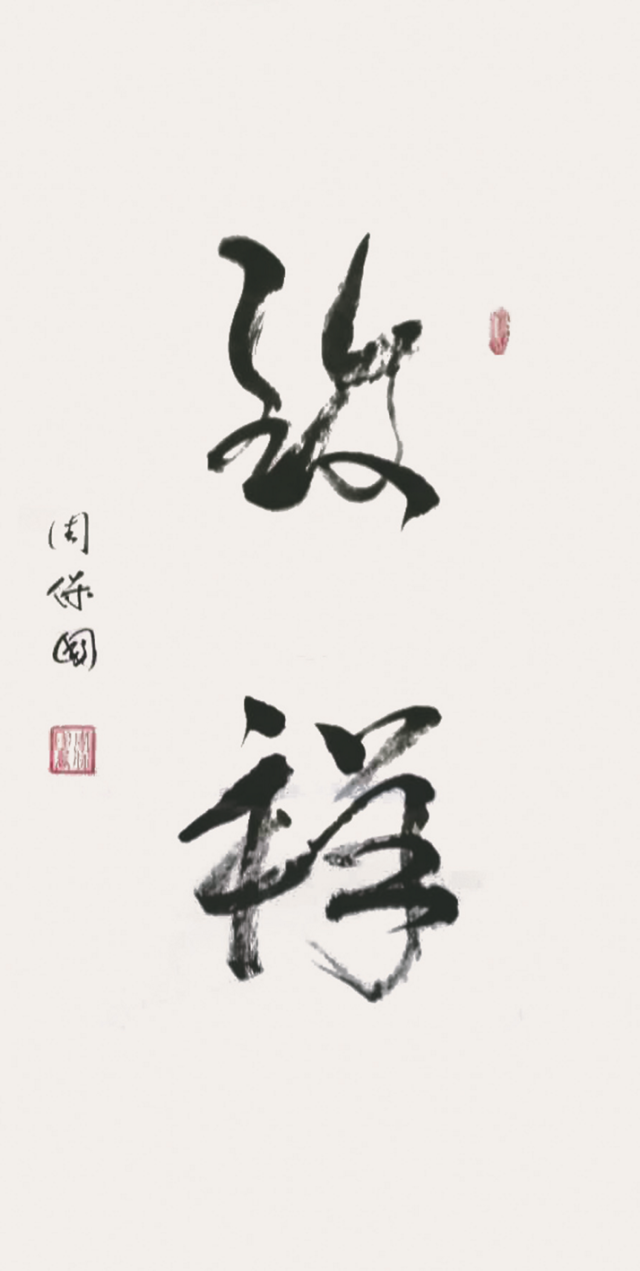 致祥
周保国